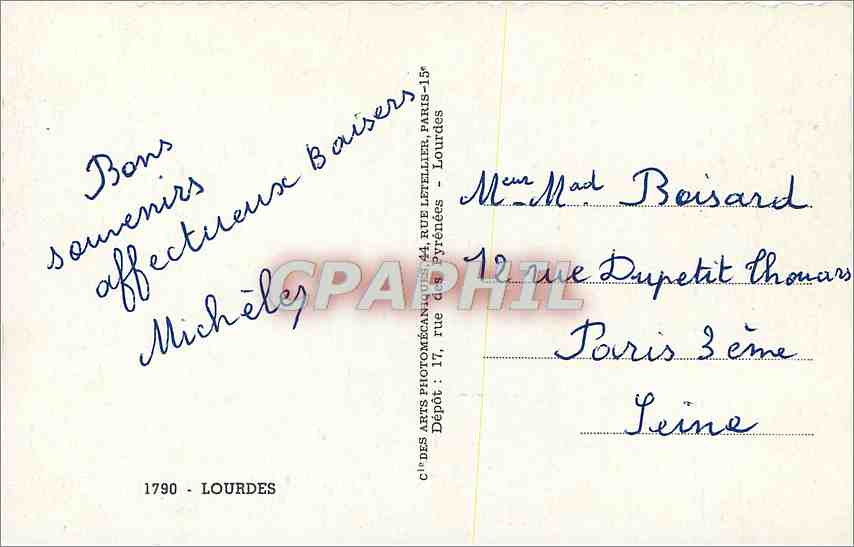 Bons
souvenirs
affectueux Baisers
Michèle
1790 - LOURDES
Cie DES ARTS PHOTOMÉCANIQUES, 44, RUE LETELLIER, PARIS-15e
Dépôt : 17, rue des Pyrénées - Lourdes
CPAPHIL
Meur Mad Boisard
12 rue Dupetit Thouars
Paris 3ème
Seine